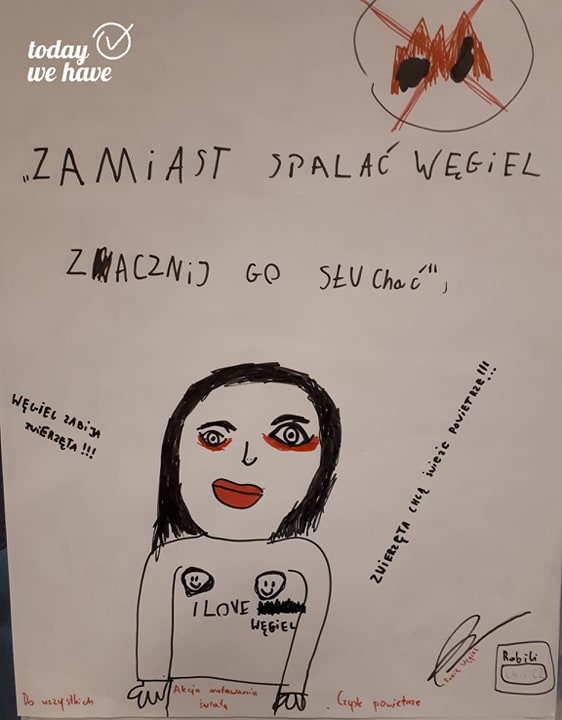 today
we have
„ZAMiAST SPALAĆ WĘGiEL
ZACZNiJ GO SŁUchać",
WĘGIEL ZABIJA
ZWIERZĘTA!!!
ZWIERZĘTA CHCĄ świeże POWIETRZE!!!
I LOVE
WĘGIEL
Robili
Do wszystkich
Akcja ratowania
świata
Czyste powietrze